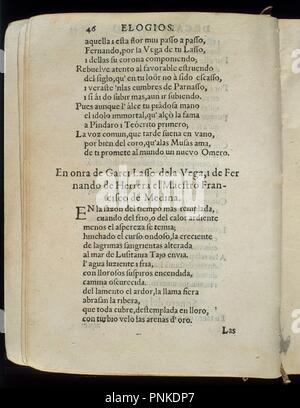 46 ELOGIOS.
aquella i esta flor mui passo a passo,
Fernando, por la Vega de tu Lasso,
i dellas su corona componiendo,
Rebuelve atento al favorable estruendo
del siglo, qu'en tu loòr no à sido escasso,
i veraste 'nlas cumbres de Parnasso,
i si ài do subir mas, aun ir subiendo.
Pues aunque l'alce tu piadosa mano
el idolo immortal, qu'alçò la fama
a Pindaro i Teòcrito primero,
La voz comun, que tarde suena en vano,
por bien del coro, qu'alas Musas ama,
de ti promete al mundo un nuevo Omero.
En onra de Garci Lasso dela Vega, i de Fer
nando de Herrera el Maestro Fran-
cisco de Medina.
EN la sazon del tiempo mas templada,
cuando del frio, o del calor ardiente
menos el aspereza se temia;
hinchado el curso ondoso, la creciente
de lagrimas sangrientas alterada
al mar de Lusitania Tajo envia.
l'agua luziente i fria,
con llorosos suspiros encendida,
camina oscurecida.
del lamento el ardor, la llama fiera
abrasan la ribera,
que toda cubre, destemplada en lloro,
con turbio velo las arenas d'oro.
Las
alamy
www.alamy.com - PNKDP7